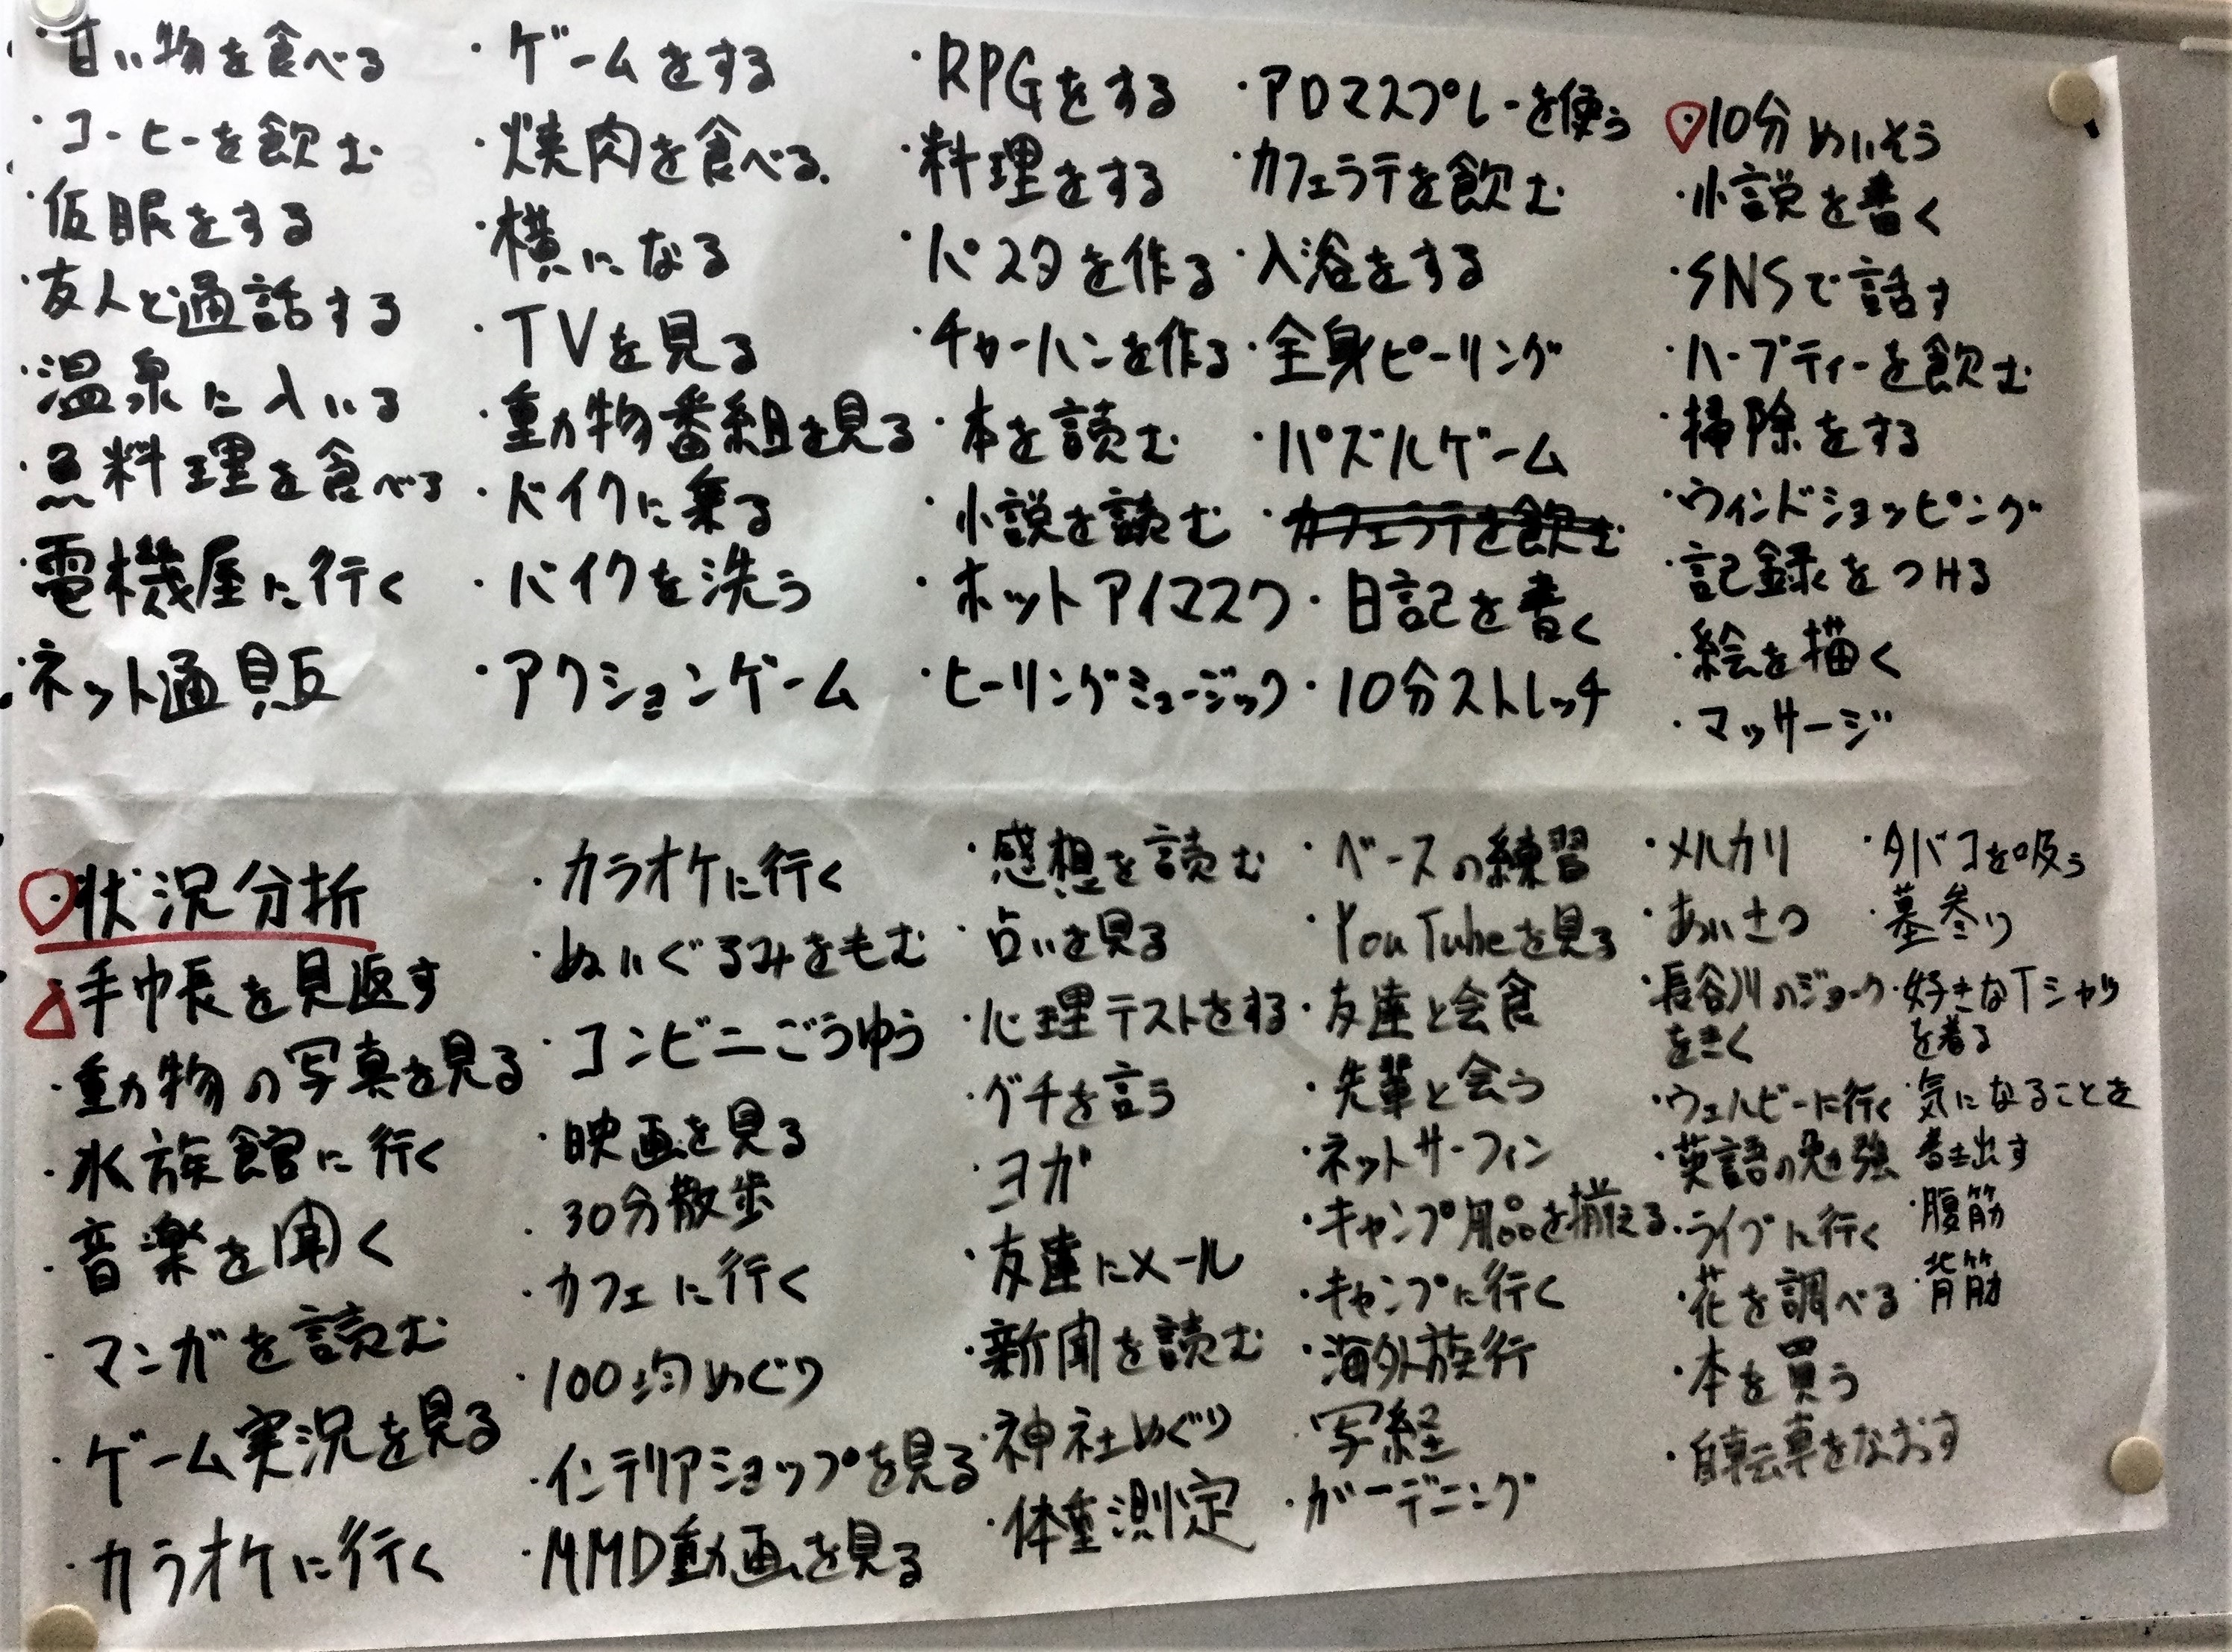 ・甘い物を食べる
・コーヒーを飲む
・仮眠をする
・友人と通話する
・温泉に入いる
・魚料理を食べる
・電機屋に行く
・ネット通販
・ゲームをする
・焼肉を食べる
・横になる
・TVを見る
・動物番組を見る
・バイクに乗る
・バイクを洗う
・アクションゲーム
・RPGをする
・料理をする
・パスタを作る
・チャーハンを作る
・本を読む
・小説を読む
・ホットアイマスク
・ヒーリングミュージック
・アロマスプレーを使う
・カフェラテを飲む
・入浴をする
・全身ピーリング
・パズルゲーム
・カフェラテを飲む
・日記を書く
・10分ストレッチ
・10分めいそう
・小説を書く
・SNSで話す
・ハーブティーを飲む
・掃除をする
・ウィンドショッピング
・記録をつける
・絵を描く
・マッサージ
・状況分折
手帳を見返す
・動物の写真を見る
・水族館に行く
・音楽を聞く
・マンガを読む
・ゲーム実況を見る
・カラオケに行く
・カラオケに行く
・ぬいぐるみをもむ
・コンビニごうゆう
・映画を見る
・30分散歩
・カフェに行く
・100均めぐり
・インテリアショップを見る
・MMD動画を見る
・感想を読む
・占いを見る
・心理テストをする
・グチを言う
・ヨガ
・友達にメール
・新聞を読む
・神社めぐり
・体重測定
・ベースの練習
・YouTubeを見る
・友達と会食
・先輩と会う
・ネットサーフィン
・キャンプ用品を揃える
・キャンプに行く
・海外旅行
・写経
・ガーデニング
・メルカリ
・あいさつ
・長谷川のジョーク
をきく
・ウェルビーに行く
・英語の勉強
・ライブに行く
・花を調べる
・本を買う
・自転車をなおす
・タバコを吸う
・墓参り
・好きなTシャツ
を着る
・気になることを
書き出す
・腹筋
・背筋